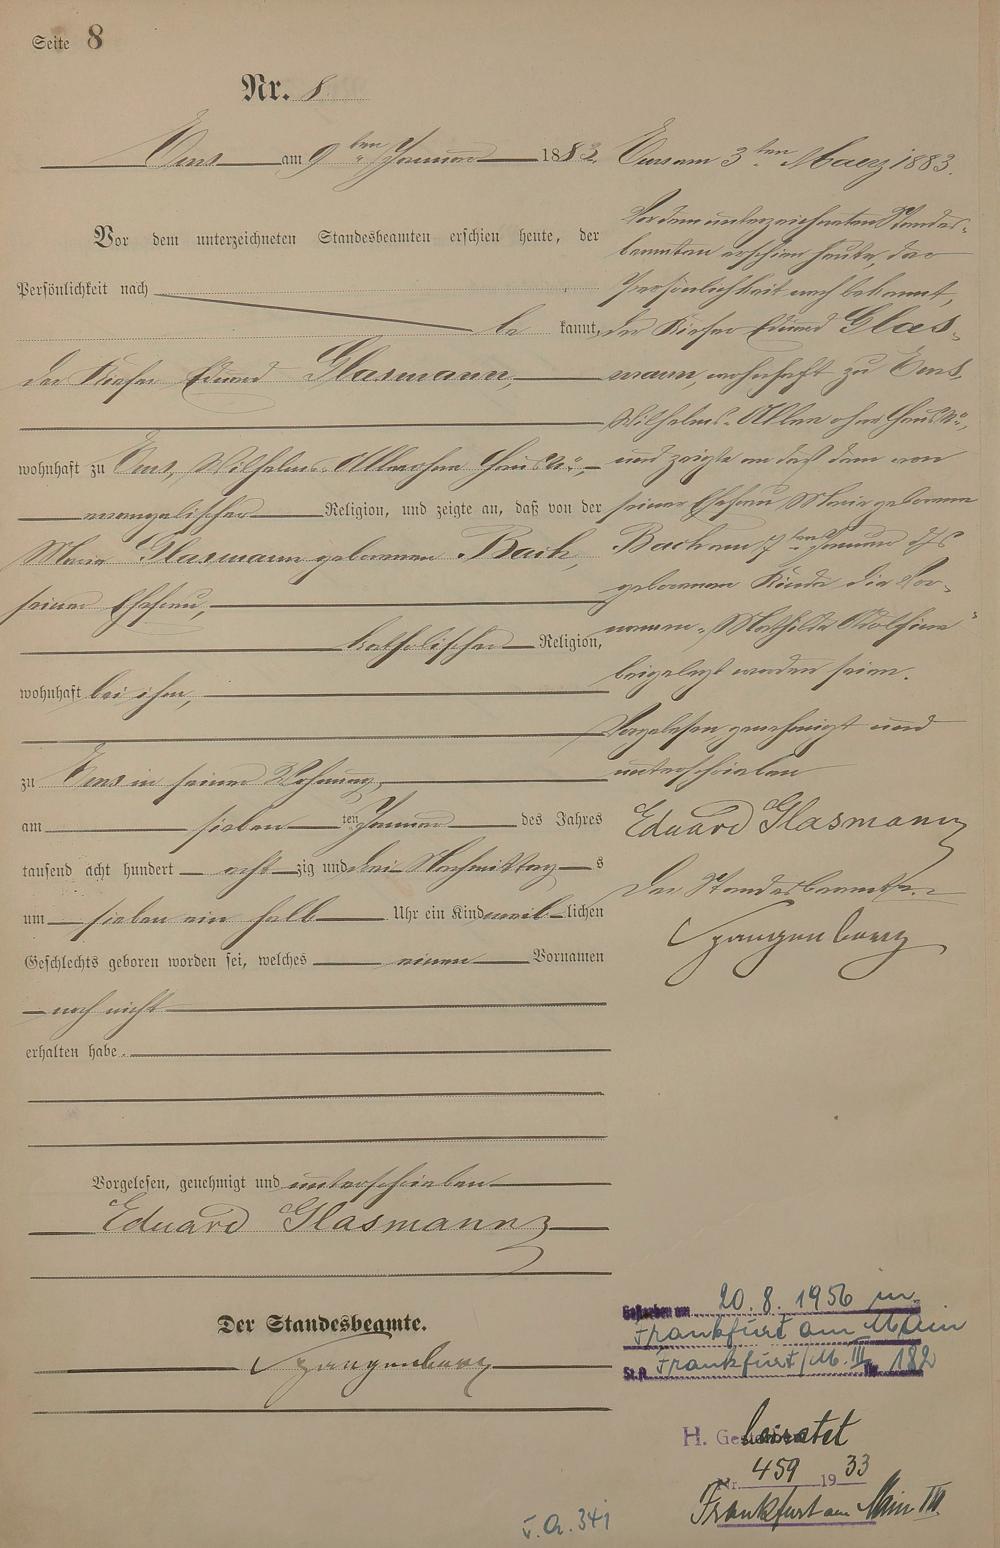 Seite 8
Nr. 8
Ems am 9ten Januar 1883
Vor dem unterzeichneten Standesbeamten erschien heute, der
Persönlichkeit nach
be kannt,
der Kiefer Eduard Glasmann,
wohnhaft zu Ems, Wilhelms-Allee ohne Haus No,
evangelischer Religion, und zeigte an, daß von der
Maria Glasmann geborenen Bach,
seiner Ehefrau,
katholischer Religion,
wohnhaft bei ihm,
zu Ems in seiner Wohnung,
am sieben ten Januar des Jahres
tausend acht hundert acht zig und drei Nachmittag s
um sieben ein halb Uhr ein Kind weib lichen
Geschlechts geboren worden sei, welches einen Vornamen
noch nicht
erhalten habe.
Vorgelesen, genehmigt und unterschrieben
Eduard Glasmann
Der Standesbeamte.
Spangenberg
Ems am 3ten Maerz 1883.
Vor dem unterzeichneten Standes-
beamten erschien heute, der
Persönlichkeit nach bekannt,
der Kiefer Eduard Glas-
mann, wohnhaft zu Ems,
Wilhelms-Allee ohne Haus No,
und zeigte an daß dem von
seiner Ehefrau Maria geborenen
Bach am 7ten Januar
geborenen Kinde die Vor-
namen "Mathilde
beigelegt worden seien.
Vorgelesen, genehmigt und
unterschrieben
Eduard Glasmann
Der Standesbeamte.
Spangenberg
Gestorben am 20.8.1956 in
Frankfurt am Main
St.A. Frankfurt/M. III Nr. 182
H. Geheiratet
Nr. 459 1933
Frankfurt am Main III
v. A. 341